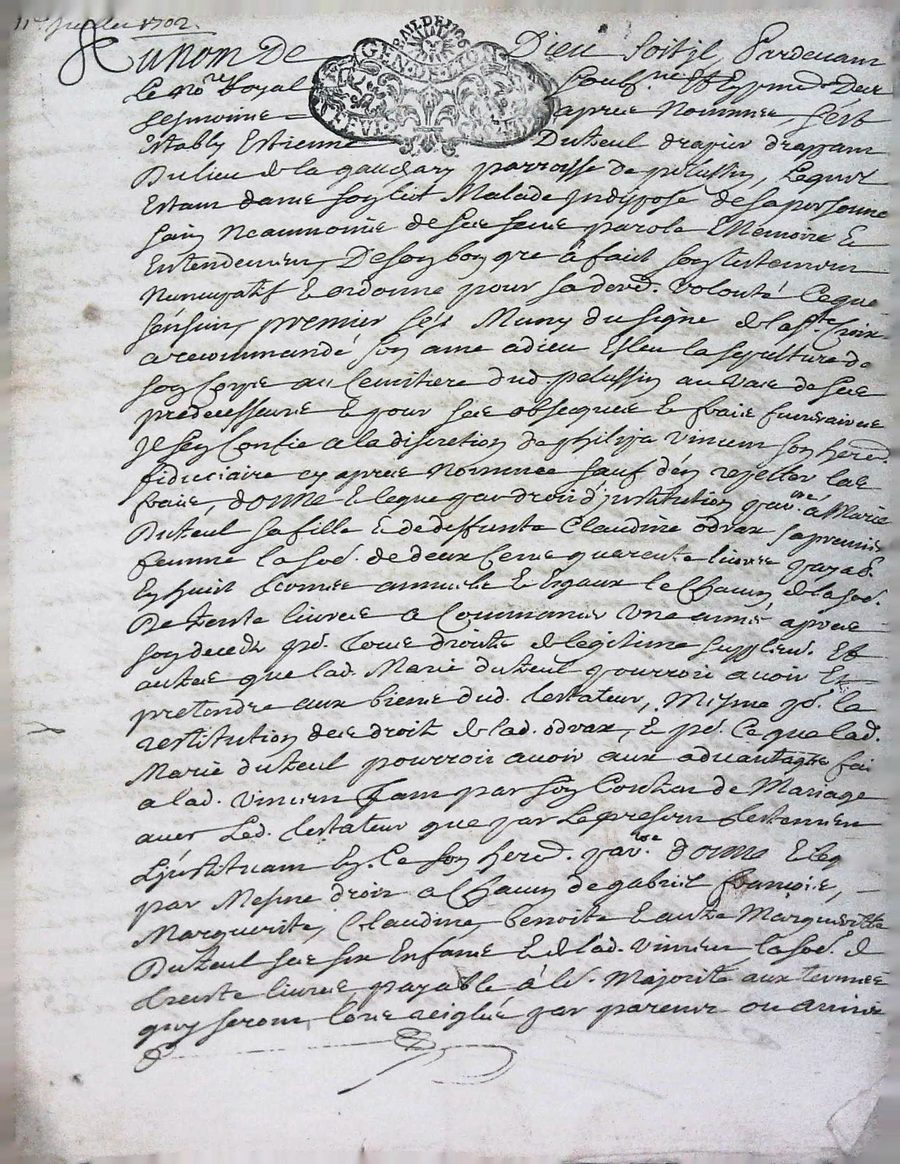 11e juillet 1702.
Au nom De Dieu soit jl, Pardevam
GEN. DE. LION
Le nore Royal soubsne Et En pnce Des
tesmoins apres Nommes, sest
Estably Estienne Duteul drapier drappam
Du lieu de la paroisse de pelussin, Lequel
Estam dans son lict Malade Indispose de sa personne
sain Neaumoins de ses sens parole Memoire Et
Entendemen, De son bon gre à fait son testamen
Nuncupatif Et ordonne pour sa dere. Volonté Ce que
sensuit, premier sest Muny du signe de la ste Croix
a recommandé son ame a dieu Esleu la sepulture de
son Corps au Cemitiere dud. pelussin au Vas de ses
predecesseurs Et pour ses obseques Et frais funeraires
Je sen Confie a la discretion de philipa Vincen son hered.
fiduciaire cy apres Nommee sauf den rejetter las
frais, donne Et legue par droit d'justitution à Marie
Duteul sa fille Et de deffunte Claudine odrax sa premie
femme la so. de deux Cens quarente livres payab.
En huit termes annuels Et Egaux le Chacun de la so.
De trente livres a Commancer une année apres
son deceds po. tous droits de legitime supplem. Et
autres que lad. Marie duteul pourroit avoir Et
pretendre aux biens dud. testateur, Mesme po. la
restitution des droit de lad. odrax, Et po. Ce que lad.
Marie duteul pourroit avoir aux advantages fai
a lad. Vincen tam par son Contrat de Mariage
avec Led. testateur que par Le presen testamen
L'justituam En Ce son hered. parre. donne Et leg
par Mesme droit a Chacun de gabriel françois,
Marguerite, Claudine, benoite Et autre Margueritte
Duteul ses six Enfans Et de lad. Vincen la so. de
trente livres payable à le. Majorité aux termes
quy seront lors reiglés par parens ou amis